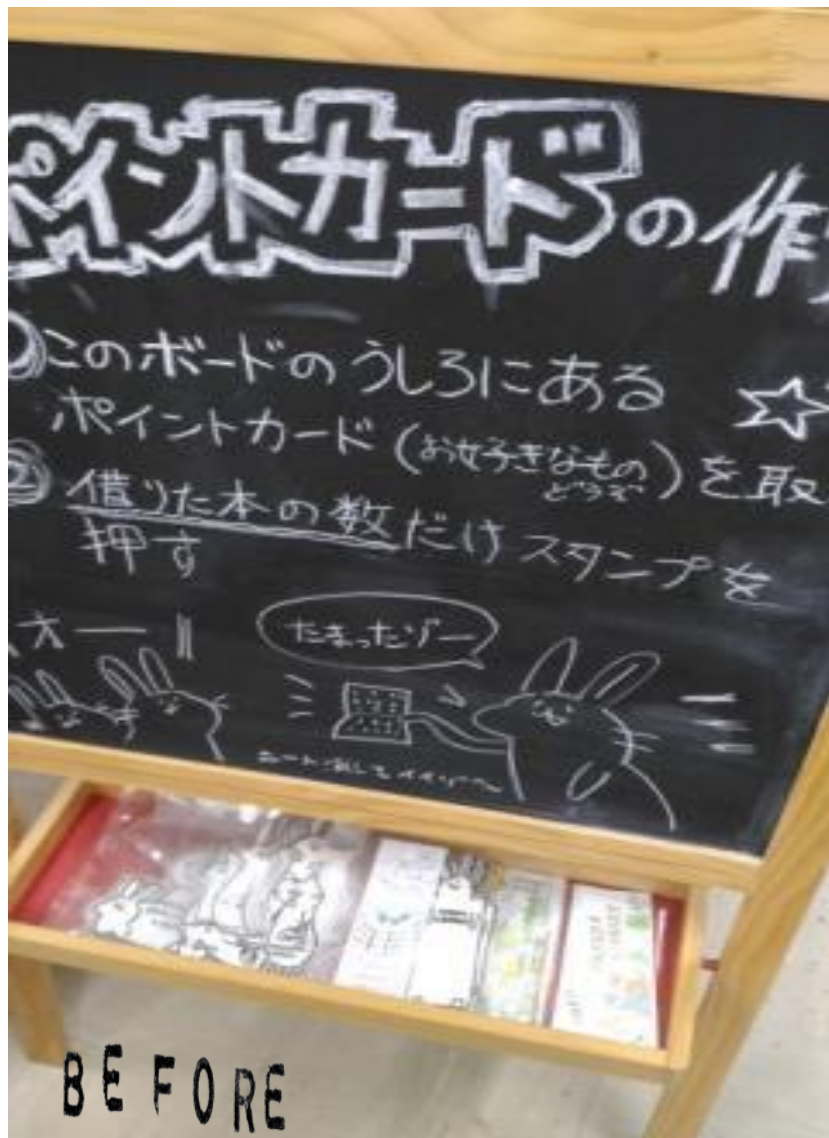 ポイントカードの作
①このボードのうしろにある
ポイントカード(お好きなもの どうぞ)を取
②借りた本の数だけスタンプを
押す
オー‼
たまったゾー
BEFORE